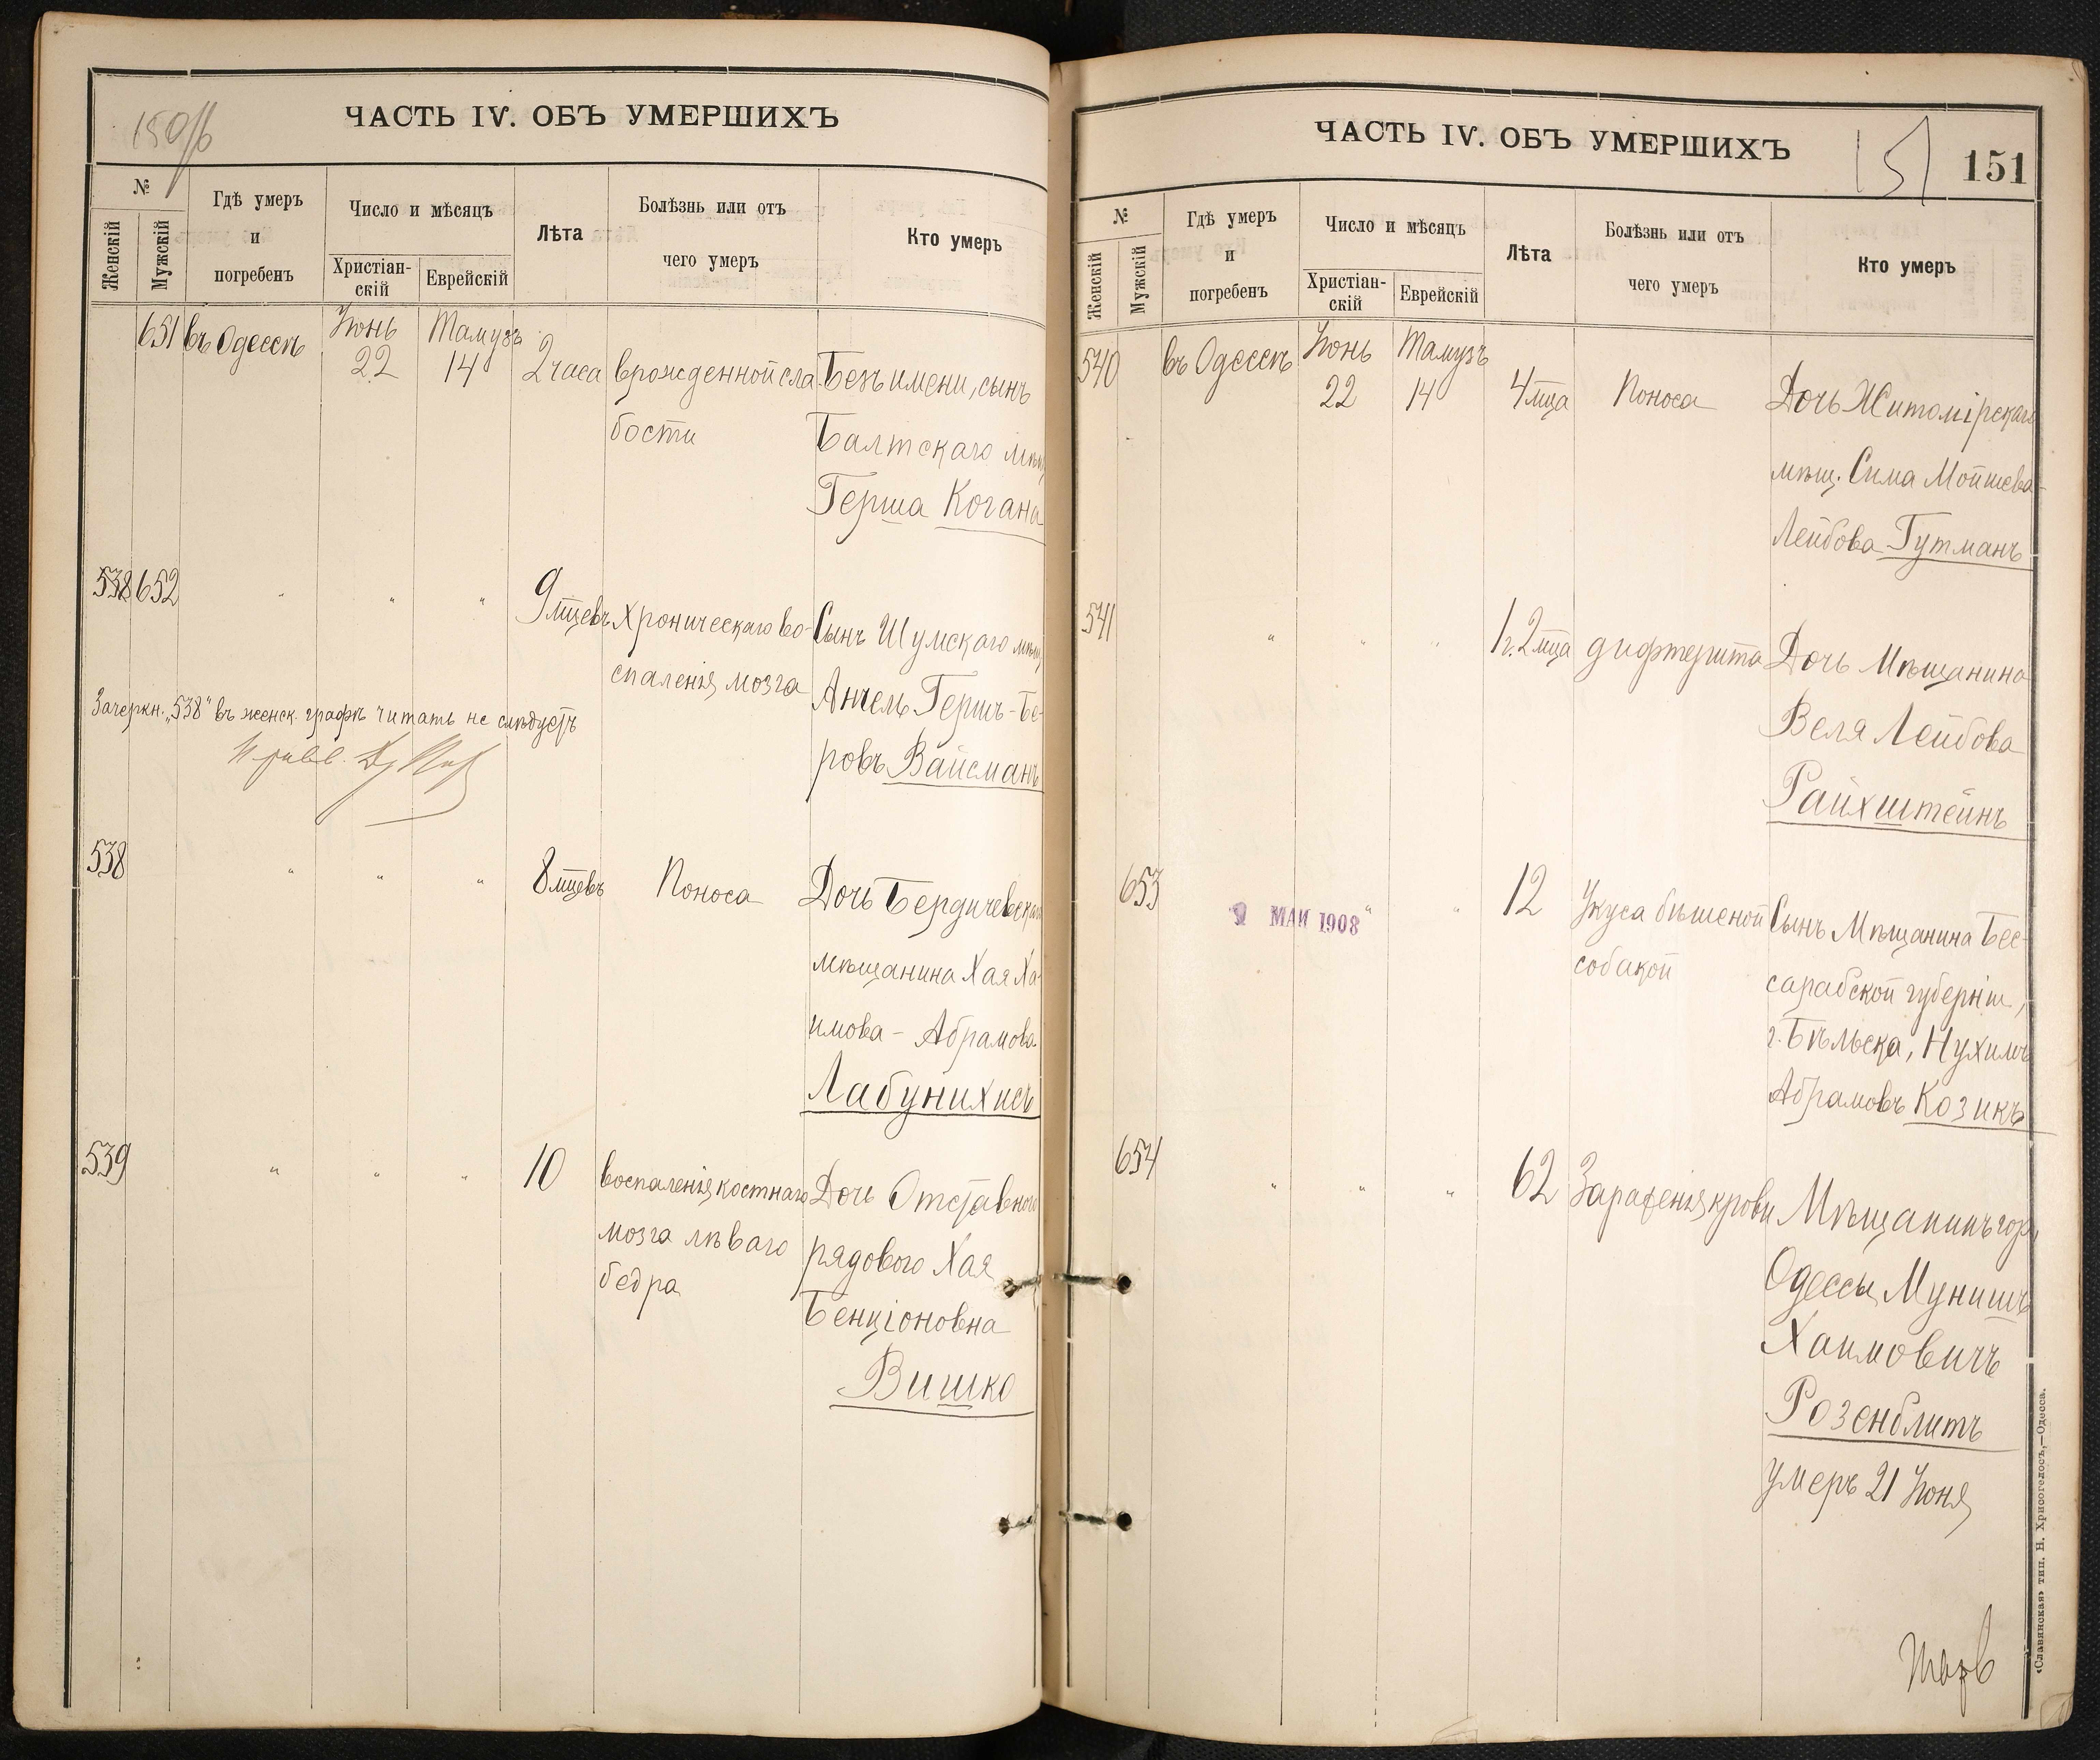 150/б
ЧАСТЬ IV. ОБЪ УМЕРШИХЪ
№
Женскій
Мужскій
Гдѣ умеръ
и
погребенъ
Число и мѣсяцъ
Христіан-
скій
Еврейскій
Лѣта
Болѣзнь или отъ
чего умеръ
Кто умеръ
651
въ Одессѣ
Іюнь
22
Тамузъ
14
2 часа
врожденной сла-
бости
Безъ имени, сынъ
Балтскаго мѣщ
Герша Когана
538 652
"
"
"
9 мцевъ
Хроническаго во-
спаленія мозга
Сынъ Шумскаго мѣщ
Анчель Гершъ-Бе-
ровъ Вайсманъ
Зачеркн. „538" въ женск. графѣ читать не слѣдуетъ
538
"
"
"
8 мцевъ
Поноса
Дочь Бердичевскаго
мѣщанина Хая Ха-
имова - Абрамова
Лабунихисъ
539
"
"
"
10
воспаленія костнаго
мозга лѣваго
бедра
Дочь Отставного
рядового Хая
Бенціоновна
Вишко
ЧАСТЬ IV. ОБЪ УМЕРШИХЪ
151
151
№
Женскій
Мужскій
Гдѣ умеръ
и
погребенъ
Число и мѣсяцъ
Христіан-
скій
Еврейскій
Лѣта
Болѣзнь или отъ
чего умеръ
Кто умеръ
540
въ Одессѣ
Іюнь
22
Тамузъ
14
4 мца
Поноса
Дочь Житомірскаго
мѣщ. Сима Мойшева-
Лейбова Гутманъ
541
"
"
"
1 г. 2 мца
дифтерита
Дочь Мѣщанина
Веля Лейбова
Райхштейнъ
653
9 МАИ 1908
"
"
12
Укуса бѣшеной
собакой
Сынъ Мѣщанина Бес-
сарабской губерніи,
г. Бѣльска, Нухимъ
Абрамовъ Козикъ
654
"
"
"
62
Зараженія крови
Мѣщанинъ гор.
Одессы Мунишъ
Хаимовичъ
Розенблитъ
умеръ 21 Іюня
«Славянская» тип. Н. Хрисогелосъ,—Одесса.